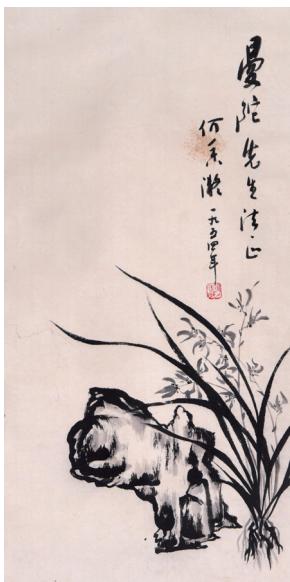 曼陀先生法正
何香凝 一九五四年